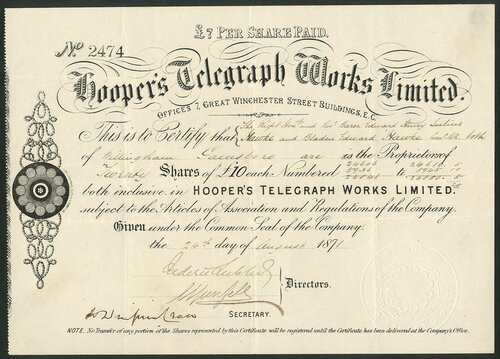 £7 PER SHARE PAID.
No 2474
Hooper's Telegraph Works Limited.
OFFICES 7, GREAT WINCHESTER STREET BUILDINGS, E.C.
The Right Honble and Revd Baron Edward Henry
This is to Certify that Hawke and Bladen Edward Hawke both
of Willingham Gainsboro are as the Proprietors of
Twenty Shares of £10 each Numbered to
both inclusive in HOOPER'S TELEGRAPH WORKS LIMITED
subject to the Articles of Association and Regulations of the Company.
Given under the Common Seal of the Company
the 24th day of August 1871
Directors.
SECRETARY.
NOTE. No Transfer of any portion of the Shares represented by this Certificate will be registered until the Certificate has been delivered at the Company's Office.